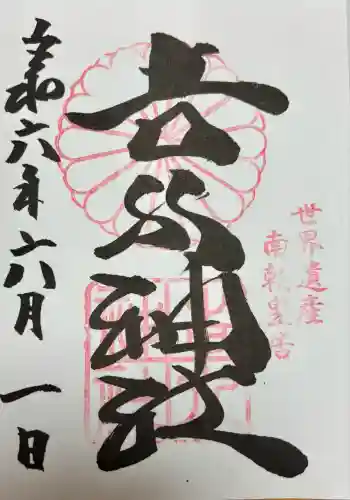 世界遺産
南朝皇居
吉水神社
令和六年六月一日